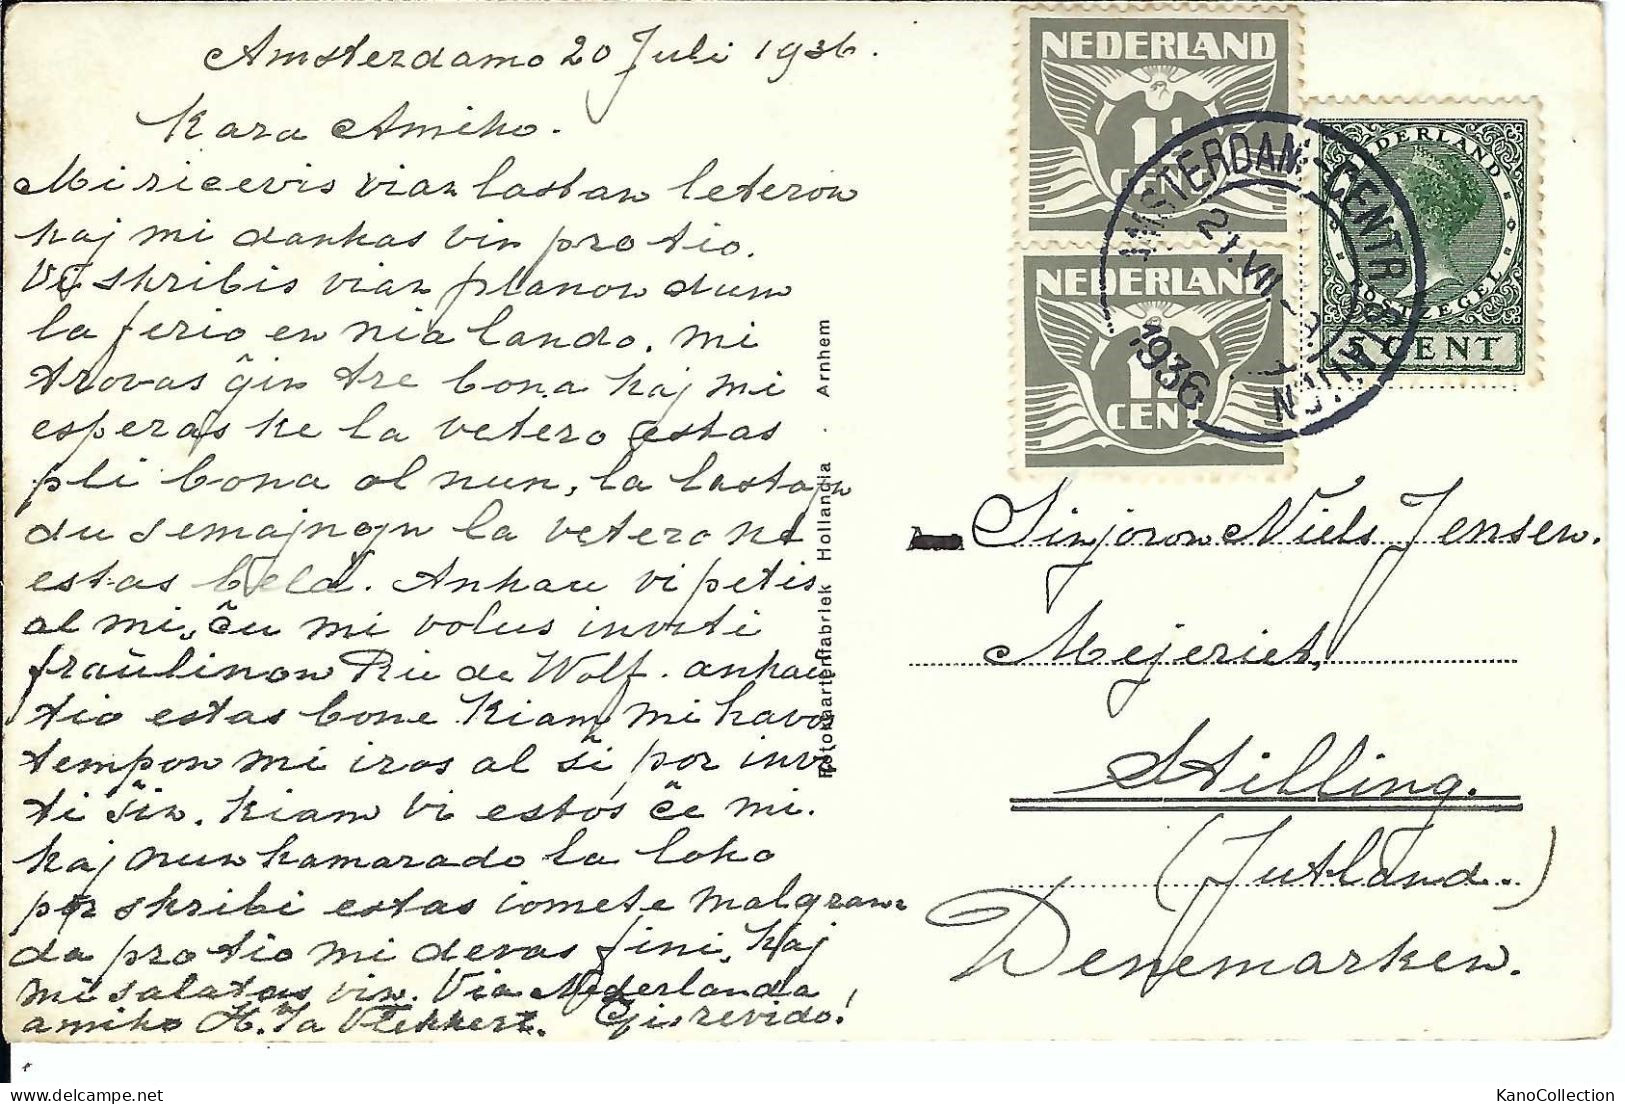 Amsterdamo 20 Juli 1936.
Kara Amiko.
Mi ricevis vian lastan leteron
kaj mi dankas vin pro tio.
Vi skribis vian planon dum
la ferio en nia lando. mi
trovas ĝin tre bona kaj mi
esperas ke la vetero estas
pli bona ol nun, la lastajn
du semajnojn la vetero ne
estas bela. Ankau vi petis
al mi, ĉu mi volus inviti
fraŭlinon Rie de Wolf. ankau
tio estas bone Kiam mi havos
tempon mi iros al ŝi por invi
ti ŝin. kiam vi estos ĉe mi.
kaj nun kamarado la loko
por skribi estas iomete malgran
da pro tio mi devas fini, kaj
mi salatas vin. Via Nederlanda
amiko H. Ta Gis revido!
Fotokaartenfabriek Hollandia . Arnhem
NEDERLAND
1½
CENT
NEDERLAND
1½
CENT
NEDERLAND
POSTZEGEL
5 CENT
AMSTERDAM-CENTR. STATION
21.VII
1936
Sinjoron Niels Jensen.
Mejeriet,
Stilling.
(Jutland.)
Denemarken.
KanoCollection